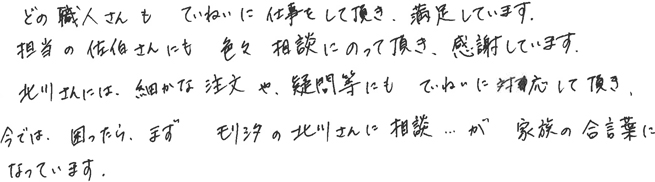 どの職人さんも ていねいに仕事をして頂き、満足しています。
担当の佐伯さんにも 色々 相談にのって頂き、感謝しています。
北川さんには、細かな注文や、疑問等にも ていねいに対応して頂き、
今では、困ったら、まず モリシタの北川さんに相談…が 家族の合言葉に
なっています。